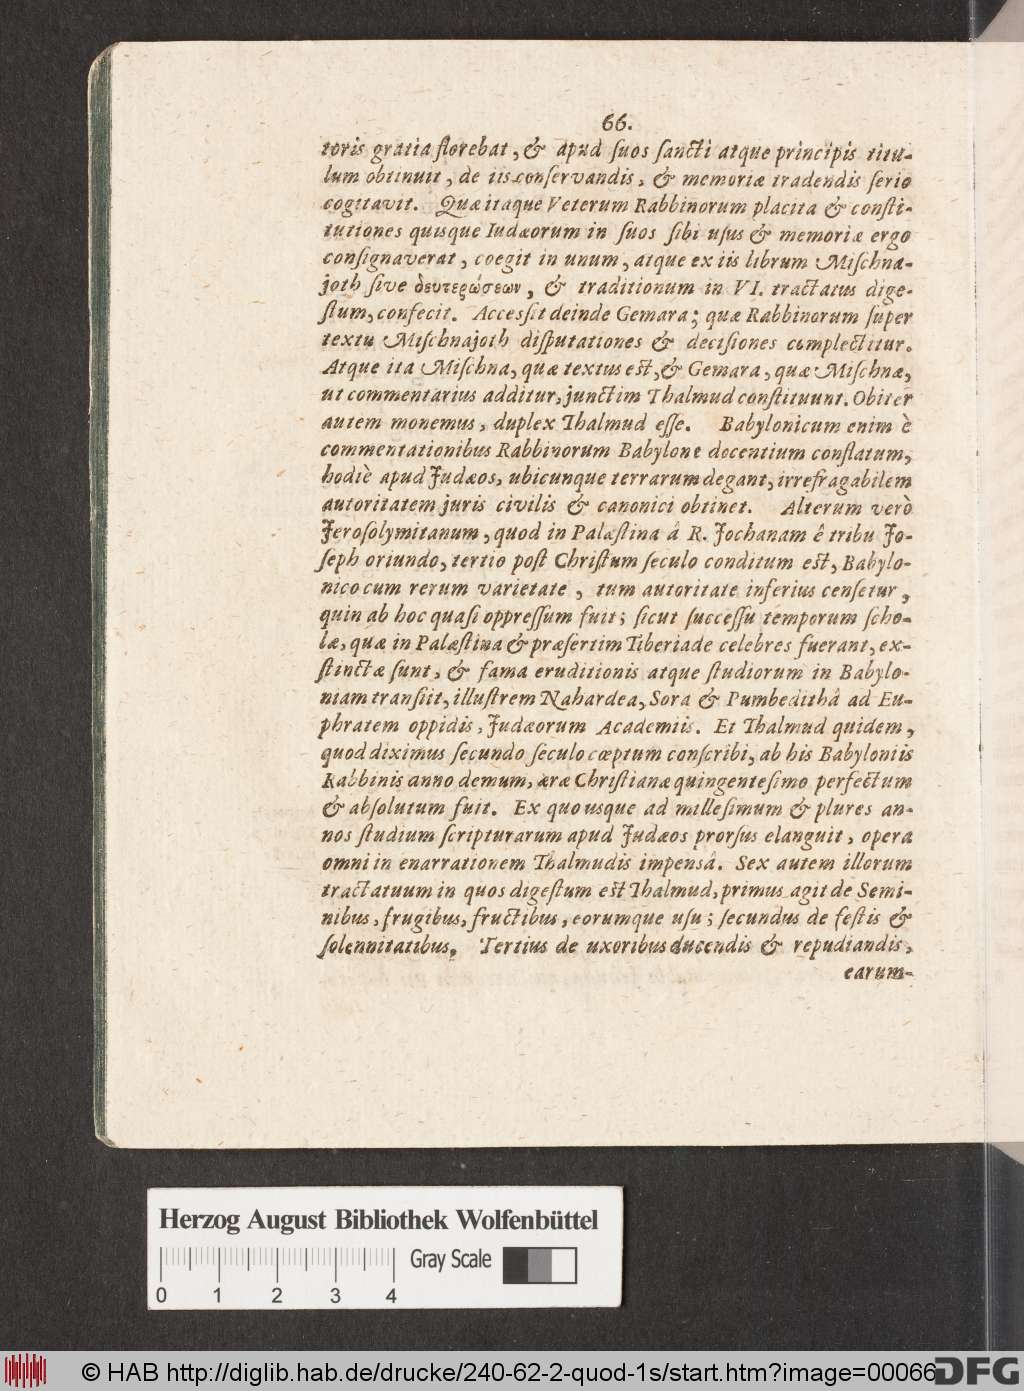 66.
toris gratia florebat, & apud suos sancti atque principis titu-
lum obtinuit, de iis conservandis, & memoriæ tradendis serio
cogitavit. Quæ itaque Veterum Rabbinorum placita & consti-
tutiones quisque Iudæorum in suos sibi usus & memoriæ ergo
consignaverat, coegit in unum, atque ex iis librum Mischna-
joth sive δευτερώσεων, & traditionum in VI. tractatus dige-
stum, confecit. Accessit deinde Gemara; quæ Rabbinorum super
textu Mischnajoth disputationes & decisiones complectitur.
Atque ita Mischna, quæ textus est, & Gemara, quæ Mischnæ,
ut commentarius additur, junctim Thalmud constituunt. Obiter
autem monemus, duplex Thalmud esse. Babylonicum enim è
commentationibus Rabbinorum Babylone docentium conflatum,
hodiè apud Judæos, ubicunque terrarum degant, irrefragabilem
autoritatem juris civilis & canonici obtinet. Alterum verò
Jerosolymitanum, quod in Palæstina â R. Jochanam ê tribu Jo-
seph oriundo, tertio post Christum seculo conditum est, Babylo-
nico cum rerum varietate, tum autoritate inferius censetur,
quin ab hoc quasi oppressum fuit; sicut successu temporum scho-
læ, quæ in Palæstina & præsertim Tiberiade celebres fuerant, ex-
stinctæ sunt, & fama eruditionis atque studiorum in Babylo-
niam transiit, illustrem Nahardea, Sora & Pumbedithâ ad Eu-
phratem oppidis, Judæorum Academiis. Et Thalmud quidem,
quod diximus secundo seculo cœptum conscribi, ab his Babyloniis
Rabbinis anno demum, æræ Christianæ quingentesimo perfectum
& absolutum fuit. Ex quo usque ad millesimum & plures an-
nos studium scripturarum apud Judæos prorsus elanguit, opera
omni in enarrationem Thalmudis impensâ. Sex autem illorum
tractatuum in quos digestum est Thalmud, primus agit de Semi-
nibus, frugibus, fructibus, eorumque usu; secundus de festis &
solennitatibus. Tertius de uxoribus ducendis & repudiandis,
earum-
Herzog August Bibliothek Wolfenbüttel
Gray Scale
0 1 2 3 4
© HAB http://diglib.hab.de/drucke/240-62-2-quod-1s/start.htm?image=00066
DFG